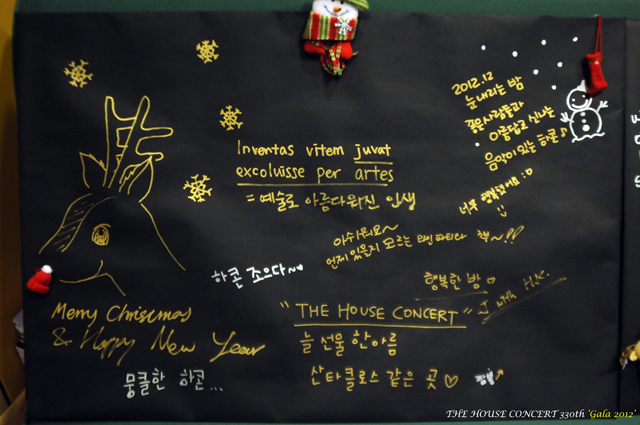 2012.12
눈내리는 밤
좋은사람들과
아름답고 신나는
음악이 있는 하콘♪
너무 행복했어요 :D
Inventas vitem juvat
excoluisse per artes
= 예술로 아름다워진 인생
아쉬워요~
언제 있을지 모르는 와인파티라
하콘 조으다~
행복한 밤
"THE HOUSE CONCERT"
늘 선물 한아름
산타클로스 같은 곳♡
Merry Chrisemas
& Happy New Year
뭉클한 하콘...
THE HOUSE CONCERT 330th 'Gala 2012'